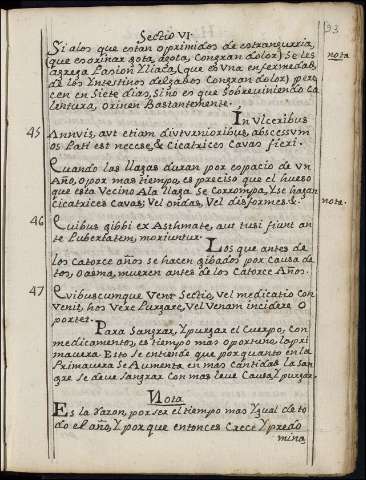 93
Sectio VI.
Si alos que estan oprimidos de estranguria,
(que es orinar gota, agota, Congran dolor) Se les
agrega Pasion Yliaca, (que es Vna enfermedad,
de los Yntestinos delgados Congran dolor) pere
cen en Siete dias, Sino es que Sobreviniendo Ca
lentura, orinen Bastantemente.
nota
45 Ín Vlceribus
Annuis, aut etiam diuturnioribus, abscessum
os Pati est necese, & Cicatrices Cavas fieri.
Quando las llagas duran por espacio de vn
Año, o por mas tiempo, es preciso que el hueso
que esta Vecino Ala llaga Se Corrompa, Y se hagan
Cicatrices Cavas, Vel ondas, Vel desformes &.
note.
46 Quibus gibbi ex Asthmate, aut tusi fiunt an
te Pubertatem, moriuntur.
Los que antes de
los Catorce años se hacen gibados por Causa de
tos, o asma, mueren antes de los Catorce Años.
47 Quibuscumque Vene Sectio, Vel medicatio Con
venit, hos Vere Purgare, Vel Venam incidere o
portet.
Para Sangrar, Y purgar el Cuerpo, Con
medicamentos, es tiempo mas oportuno, la pri
mavera. Esto se entiende que por quanto en la
Primavera Se Aumenta en mas cantidad la San
gre Se deve Sangrar Con mas leve Causa, Y purgar.
Nota
Es la razon, por ser el tiempo mas Ygual de to
do el año, Y por que entonces Crece Y predo
mina